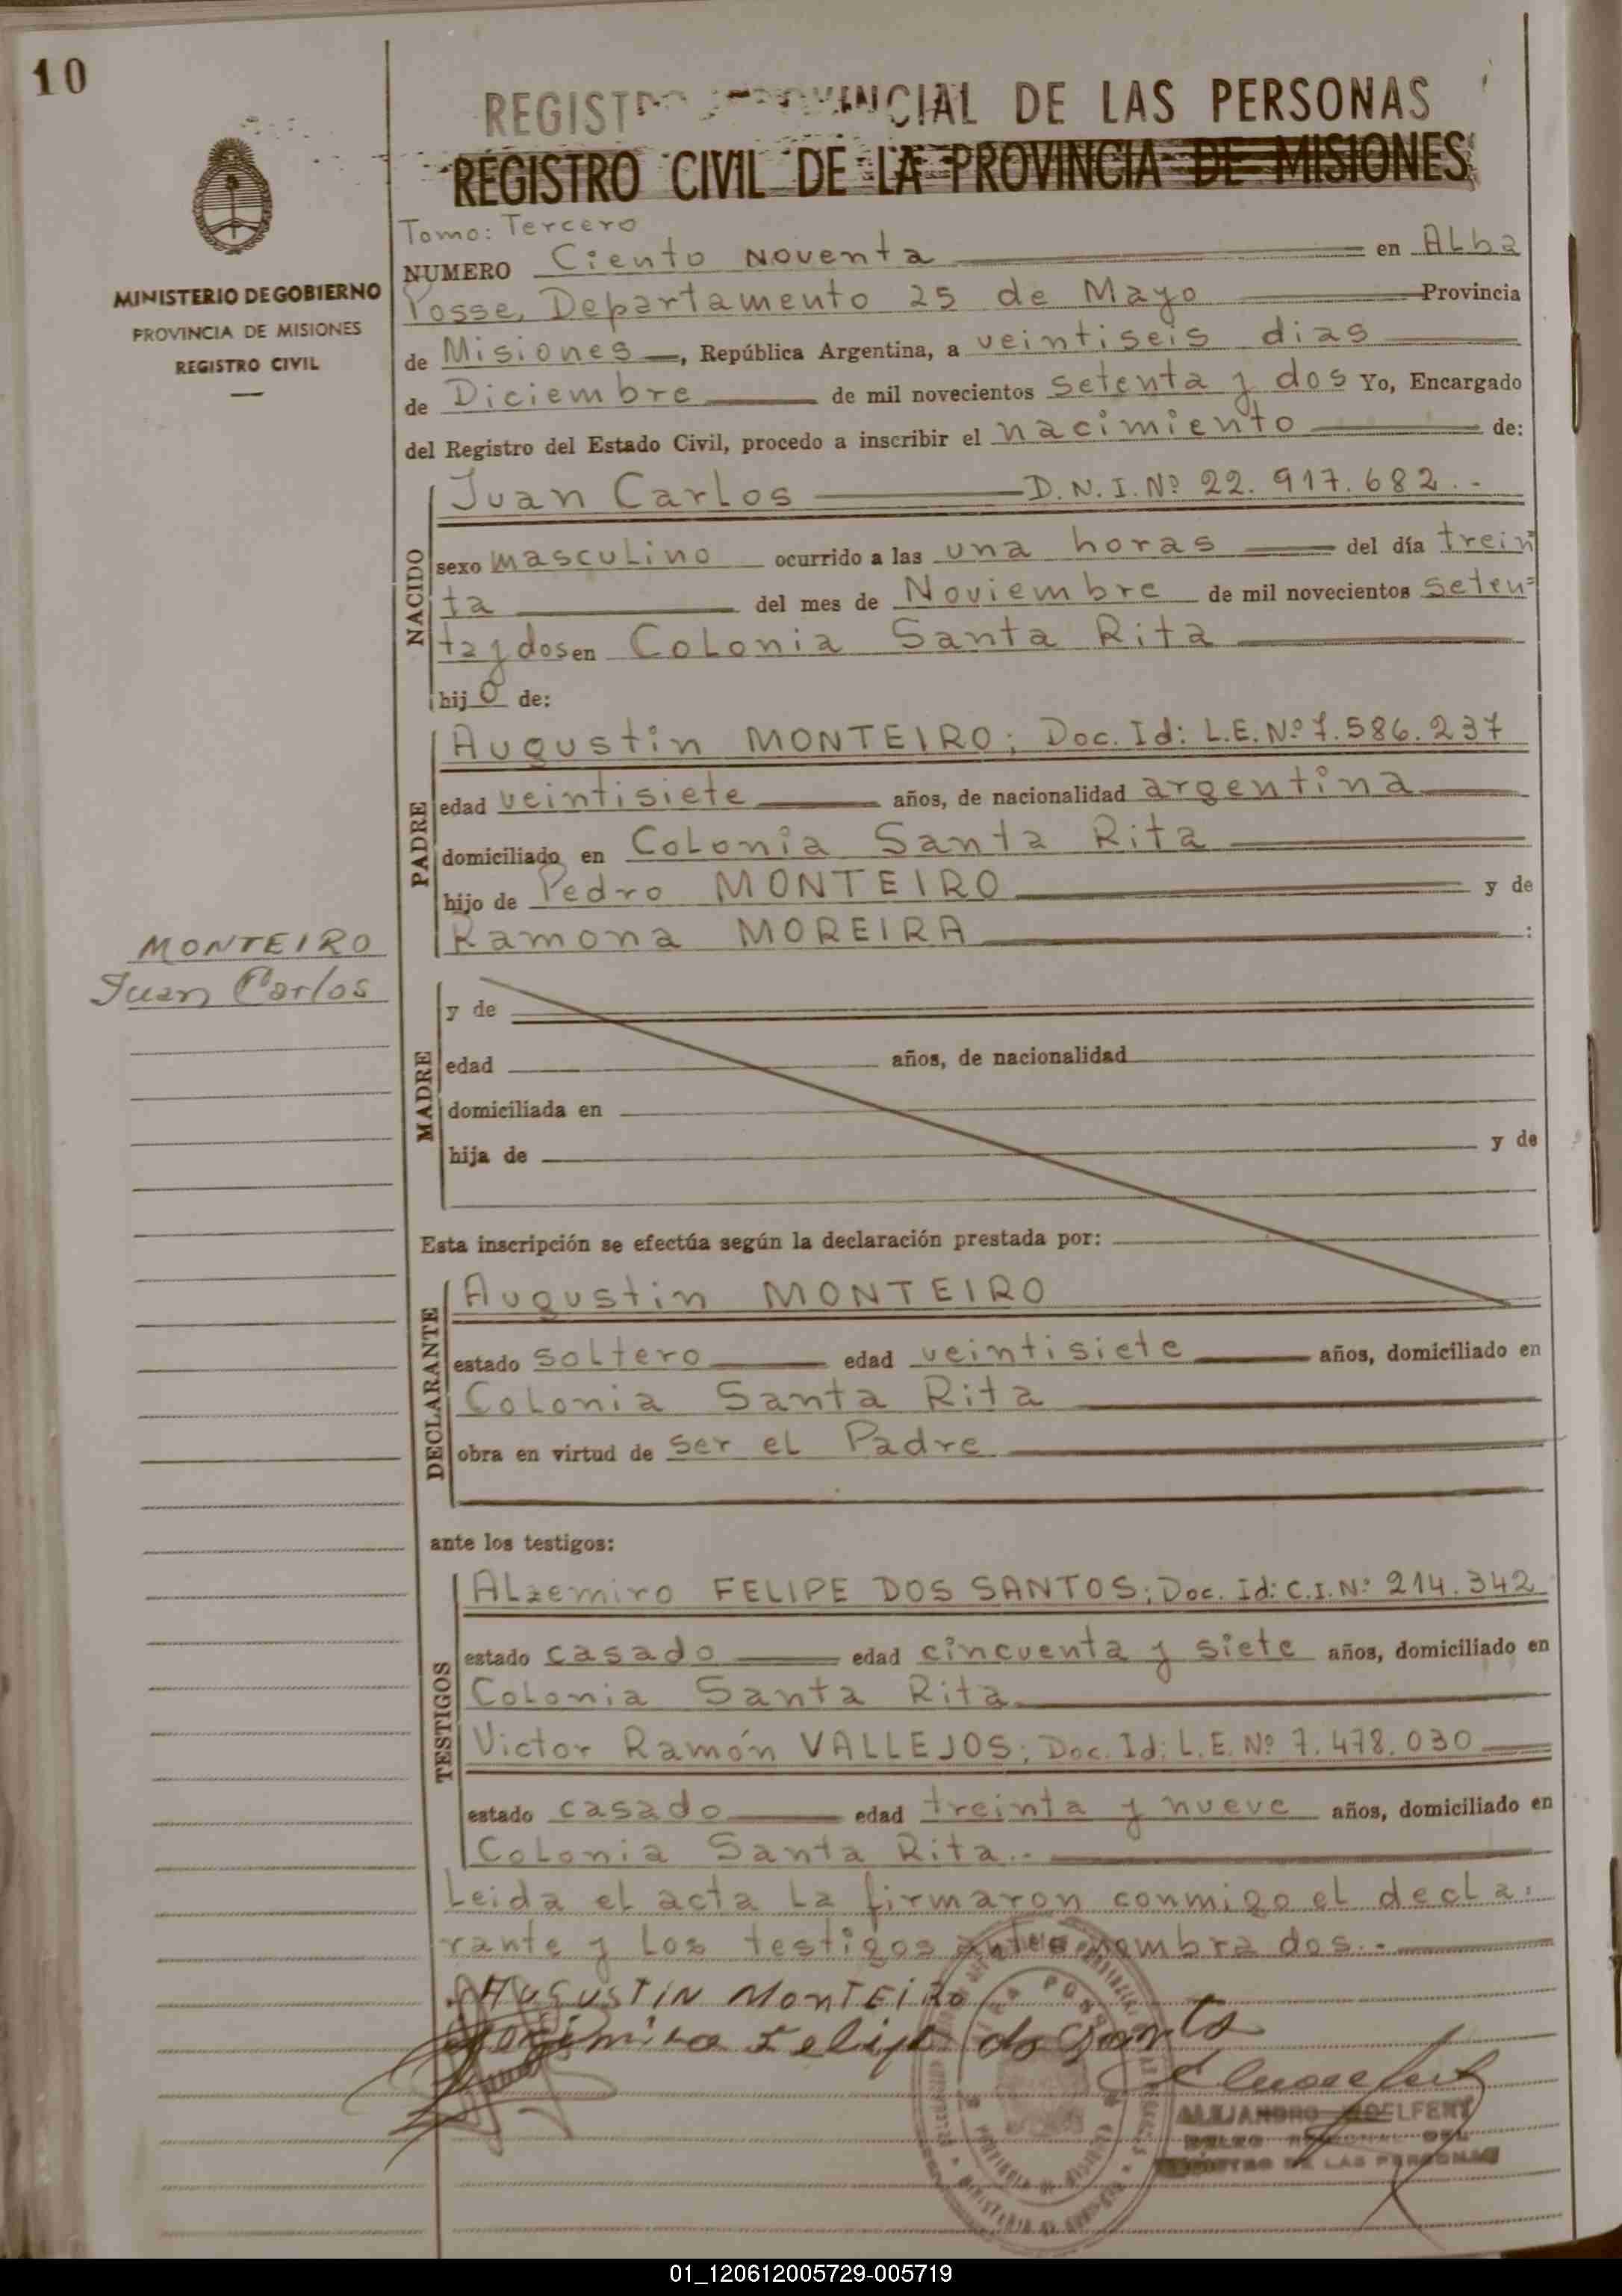 10
REGISTRO PROVINCIAL DE LAS PERSONAS
REGISTRO CIVIL DE LA PROVINCIA DE MISIONES
MINISTERIO DE GOBIERNO
PROVINCIA DE MISIONES
REGISTRO CIVIL
Tomo: Tercero
NUMERO Ciento Noventa en ALba
Posse, Departamento 25 de Mayo Provincia
de Misiones, República Argentina, a veintiseis dias
de Diciembre de mil novecientos setenta y dos Yo, Encargado
del Registro del Estado Civil, procedo a inscribir el nacimiento de:
NACIDO
Juan Carlos D.N.I. Nº 22.917.682.-
sexo masculino ocurrido a las una horas del día trein
ta del mes de Noviembre de mil novecientos seten=
ta y dos en Colonia Santa Rita
hijo de:
PADRE
Augustin MONTEIRO; Doc. Id: L.E. Nº 7.586.237
edad veintisiete años, de nacionalidad argentina
domiciliado en Colonia Santa Rita
hijo de Pedro MONTEIRO y de
Ramona MOREIRA :
MONTEIRO
Juan Carlos
MADRE
y de
edad años, de nacionalidad
domiciliada en
hija de y de
Esta inscripción se efectúa según la declaración prestada por:
DECLARANTE
Augustin MONTEIRO
estado soltero edad veintisiete años, domiciliado en
Colonia Santa Rita
obra en virtud de ser el Padre
ante los testigos:
TESTIGOS
Alzemiro FELIPE DOS SANTOS; Doc. Id: C.I. Nº 214.342
estado casado edad cincuenta y siete años, domiciliado en
Colonia Santa Rita
Victor Ramón VALLEJOS; Doc. Id: L.E. Nº 7.478.030
estado casado edad treinta y nueve años, domiciliado en
Colonia Santa Rita.-
Leida el acta la firmaron conmigo el decla-
rante y los testigos antes nombrados.-
AUGUSTIN MONTEIRO
Felipe do Santo
ALEJANDRO
REGISTRO DE LAS PERSONAS
01_120612005729-005719